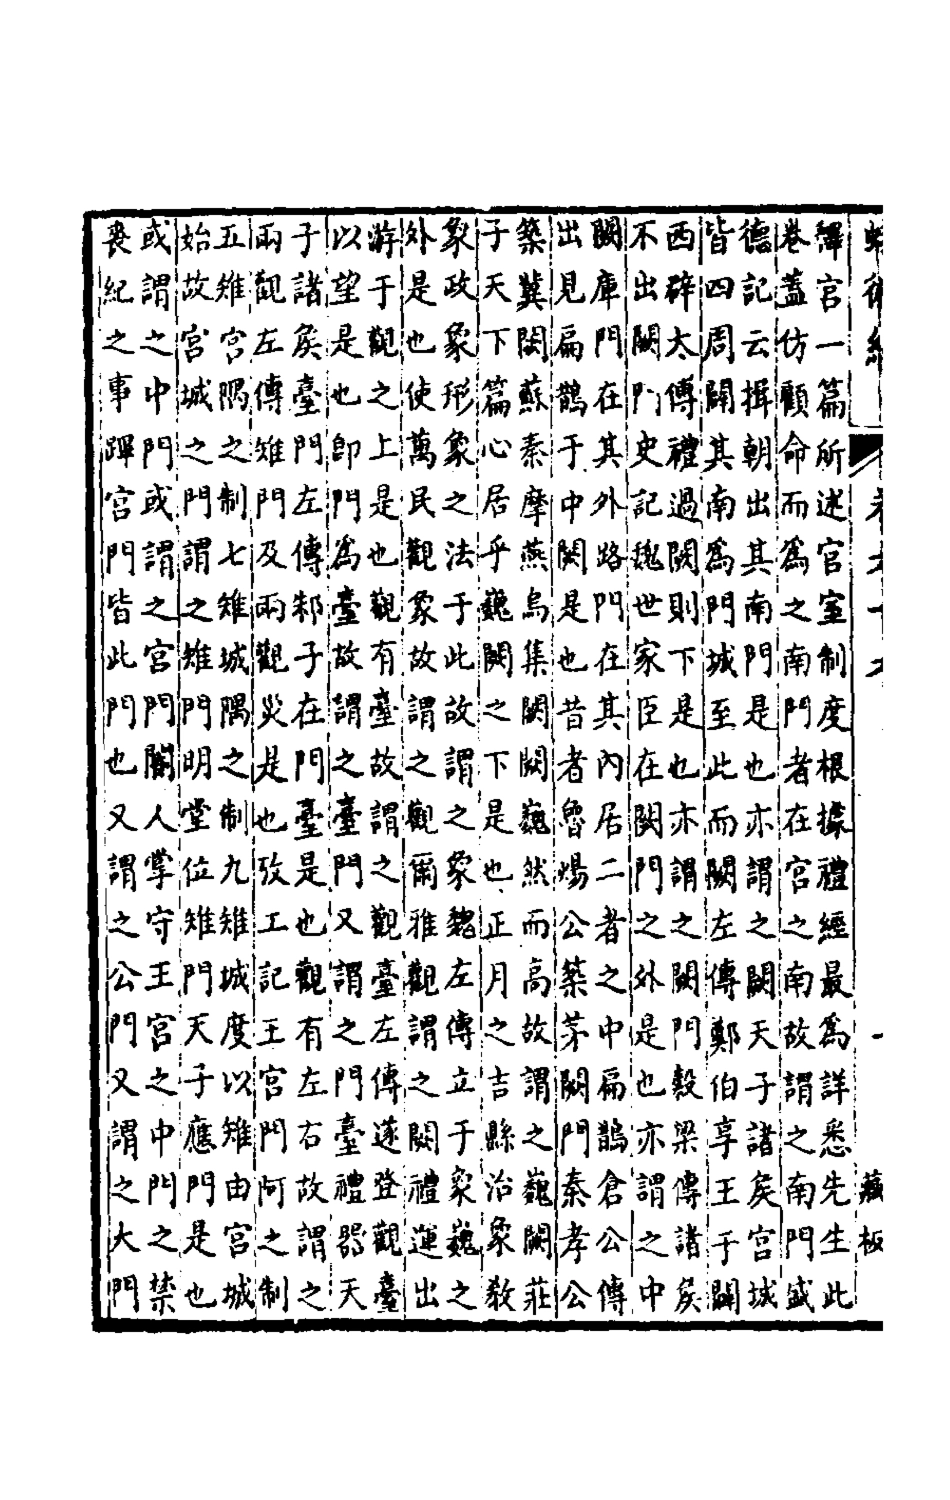 一　藏板
釋宮一篇所述宮室制度根據禮經最為詳悉先生此
卷蓋仿顧命而為之南門者在宮之南故謂之南門盛
德記云揖朝出其南門是也亦謂之闕天子諸矦宮城
皆四周闕其南為門城至此而闕左傳鄭伯享王于闕
西辟太傅禮過闕則下是也亦謂之闕門穀梁傳諸矦
不出闕門史記魏世家臣在闕門之外是也亦謂之中
闕庫門在其外路門在其內居二者之中扁鵲倉公傳
出見扁鵲于中闕是也昔者魯煬公築茅闕門秦孝公
築冀闕蘇秦摩燕烏集闕闕巍然而高故謂之巍闕莊
子天下篇心居乎巍闕之下是也正月之吉縣治象教
象政象形象之法于此故謂之象魏左傳立于象巍之
外是也使萬民觀象故謂之觀爾雅觀謂之闕禮運出
游于觀之上是也觀有臺故謂之觀臺左傳遂登觀臺
以望是也即門為臺故謂之臺門又謂之門臺禮器天
子諸矦臺門左傳邾子在門臺是也觀有左右故謂之
兩觀左傳雉門及兩觀災是也攷工記王宮門阿之制
五雉宮隅之制七雉城隅之制九雉城度以雉由宮城
始故宮城之門謂之雉門明堂位雉門天子應門是也
或謂之中門或謂之宮門閽人掌守王宮之中門之禁
喪紀之事蹕宮門皆此門也又謂之公門又謂之大門